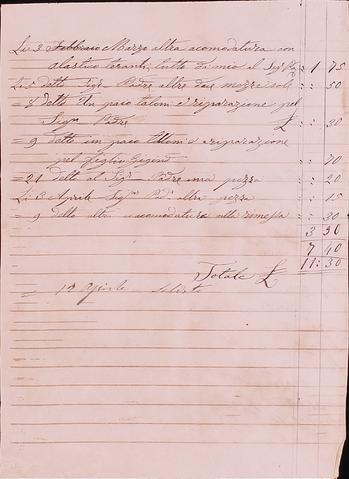 Li 3 Febbraio Marzo altra acomodatura con
elastico tiranti, tutto di mio al Sigr 1 75
Li 5 detto Sigr Padre altre due mezze sole : 50
= 8 detto Un paio taloni e riparazione pel
Sigr Padre £ : 30
= 9 detto un paio talloni e riparazione
pel figlio : 70
= 21 detto al Sigr Padre una pezza : 20
Li 3 Aprile Sigr altra pezza : 15
= 9 detto altra acomodatura alle rimessa : 30
3 90
7 40
Totale £ 11:30
= 12 Agosto